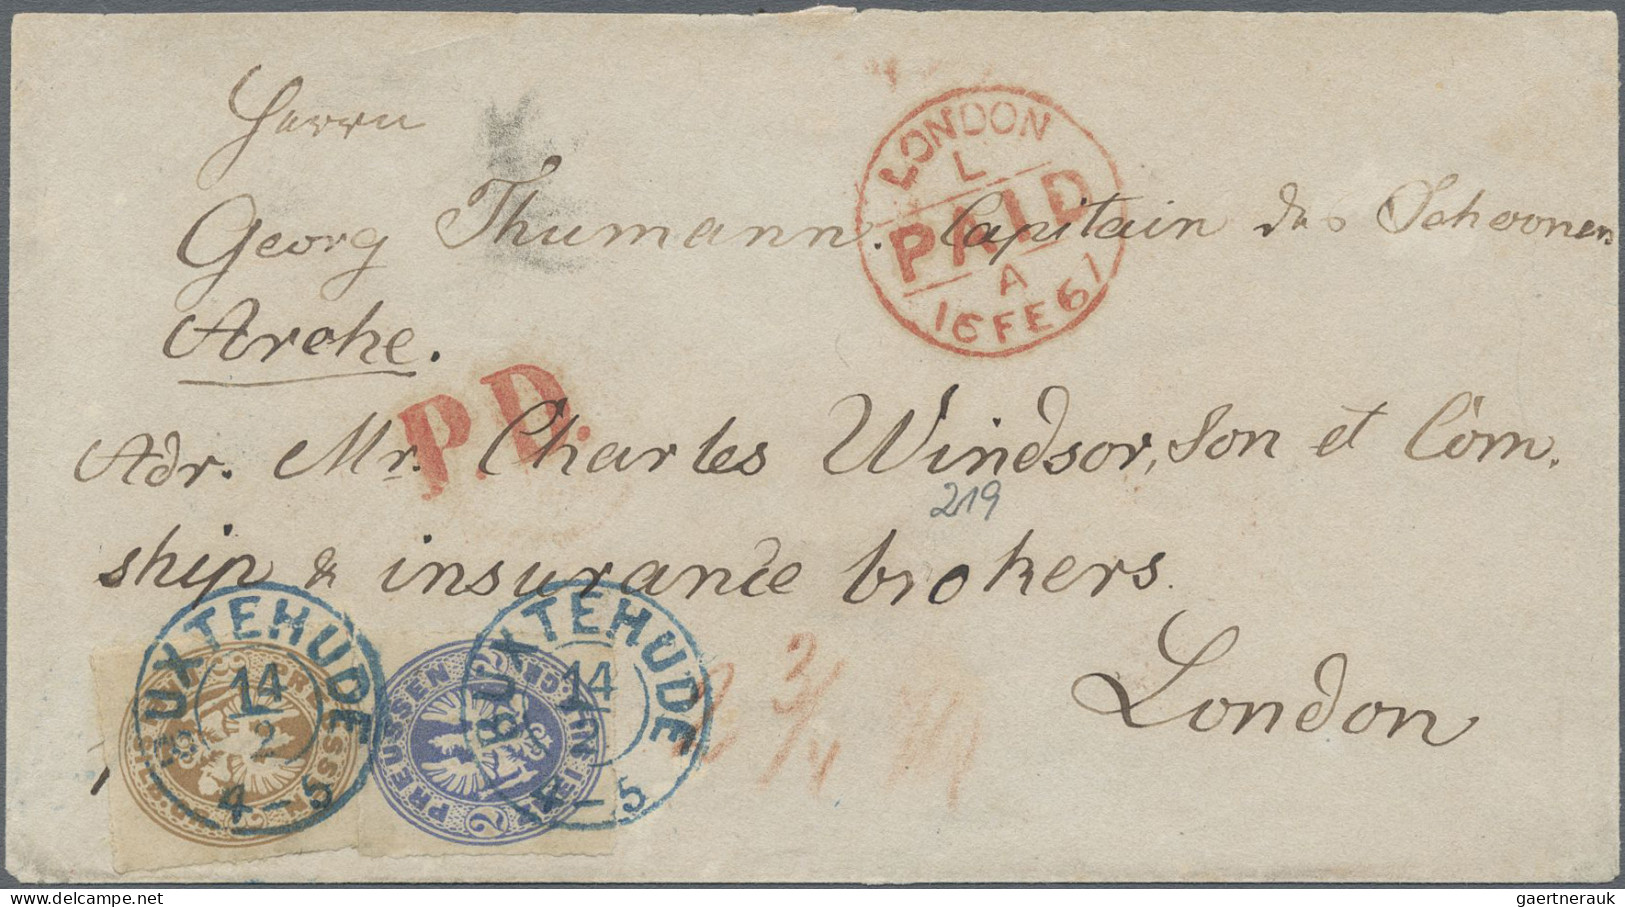 Herrn
LONDON
L
PAID
A
16 FE 67
Georg Thumann. Capitain des Schooners
Arche.
P.D.
Adr. Mr. Charles Windsor, Son et Com.
219
ship & insurance brokers.
London
BUXTEHUDE
14
2
4-5
BUXTEHUDE
14
4-5
PREUSSEN
2
PREUSSEN
2
2 3/4
gaertnerauk